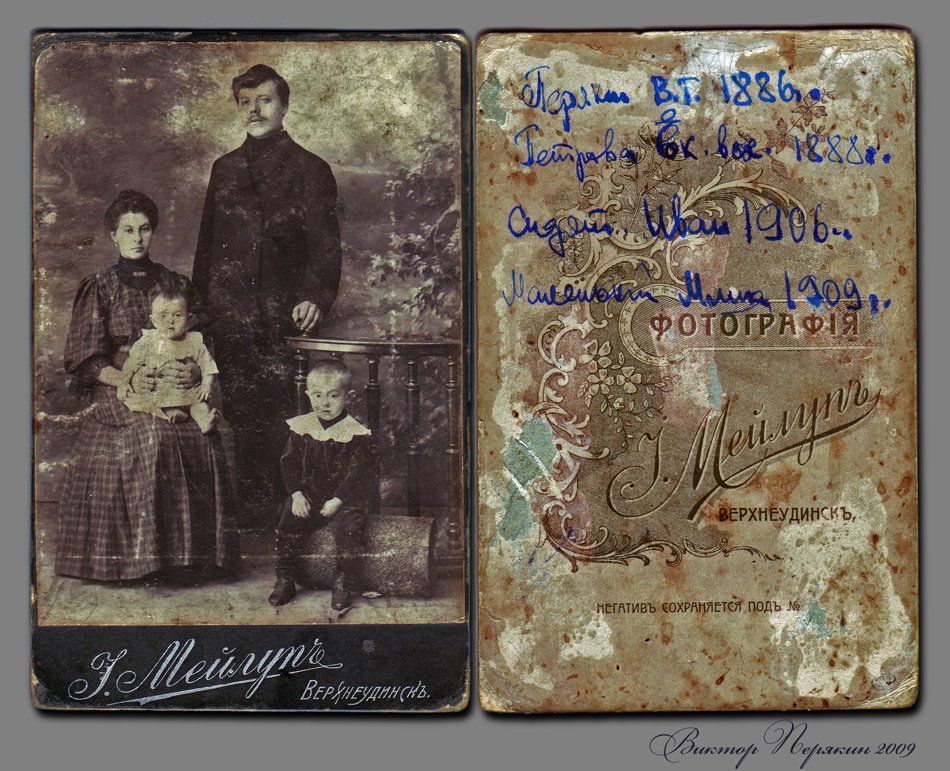 І. Мейлупъ
Верхнеудинскъ.
Перякин В.Т. 1886 г.
Петрова Ек. 1888 г.
Сидит. Иван 1906 г.
Маленький 1909 г.
ФОТОГРАФІЯ
І. Мейлупъ
ВЕРХНЕУДИНСКЪ,
НЕГАТИВЪ СОХРАНЯЕТСЯ ПОДЪ №
Виктор Перякин 2009